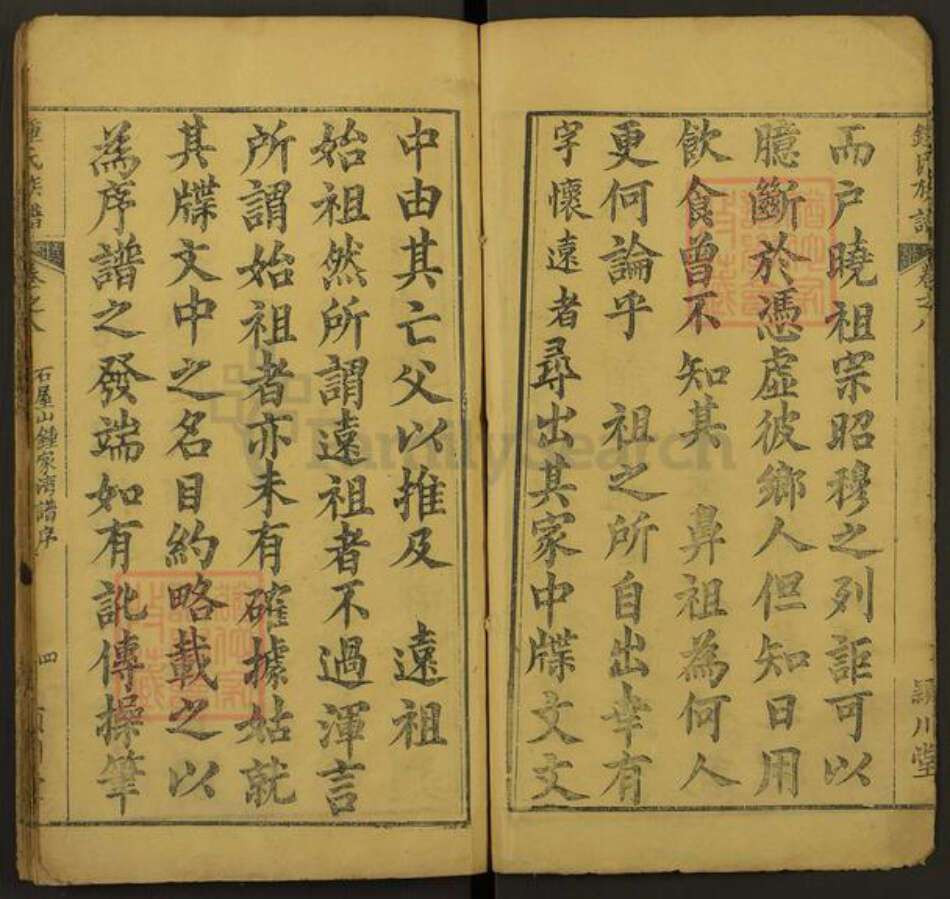 鍾氏族譜 卷之八 潁川堂
而户曉祖宗昭穆之列詎可以
臆斷於憑虛彼鄉人但知日用
飲食曾不知其 鼻祖為何人
更何論乎 祖之所自出幸有
字懷遠者尋出其家中牒文文
中由其亡父以推及 遠祖
始祖然所謂遠祖者不過渾言
所謂始祖者亦未有確據姑就
其牒文中之名目約略載之以
為序譜之發端如有訛傳操筆
鍾氏族譜 卷之八 石屋山鍾家灣譜序 四
FamilySearch